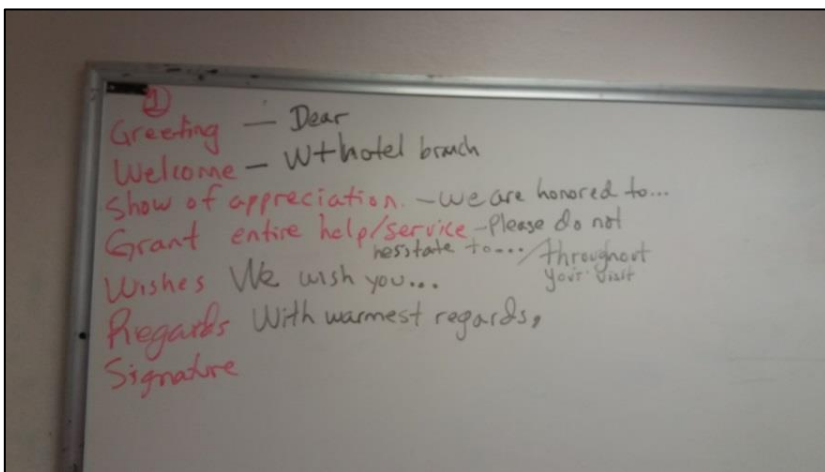 ①
Greeting — Dear
Welcome — W+hotel branch
Show of appreciation. — we are honored to...
Grant entire help/service - Please do not
hesitate to... / throughout
your visit
Wishes We wish you...
Regards With warmest regards,
Signature